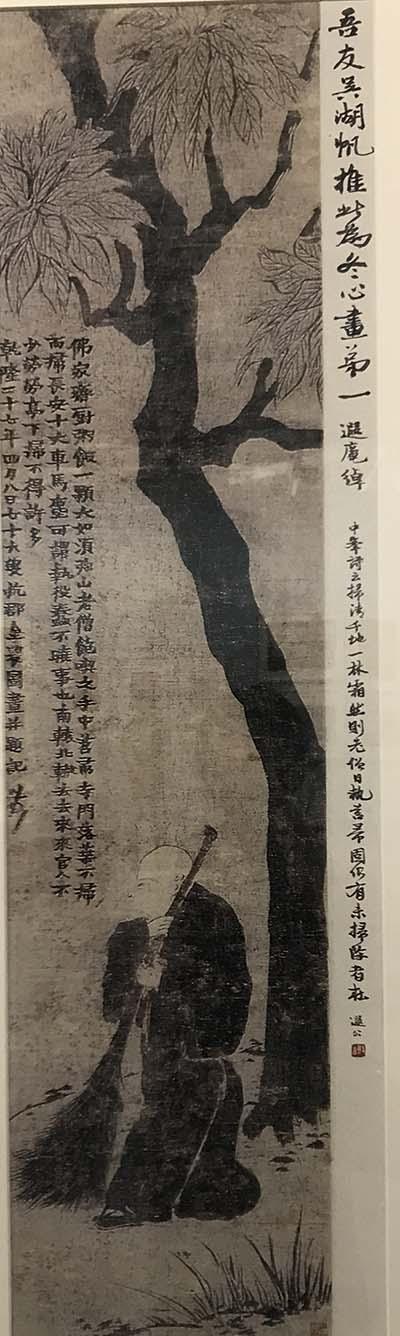 吾友吳湖帆推此為冬心畫第一 遐庵綽
中峯詩云掃地一林霜然則老僧日執苕帚固仍有未掃除者在 遐公
佛家齋廚粥飯一顆大如須弥山老僧飽喫之手中苕帚寺門落葉不掃
而掃長安十丈車馬塵可謂執役蠢不曉事也南轅北轍去去來來官人不
少勞勞亭下掃不得許多
乾隆二十七年四月八日七十六叟杭郡金農圖畫并題記